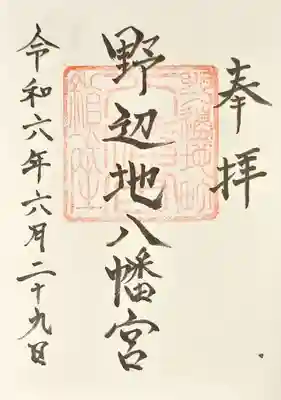 奉拝
野辺地八幡宮
令和六年六月二十九日